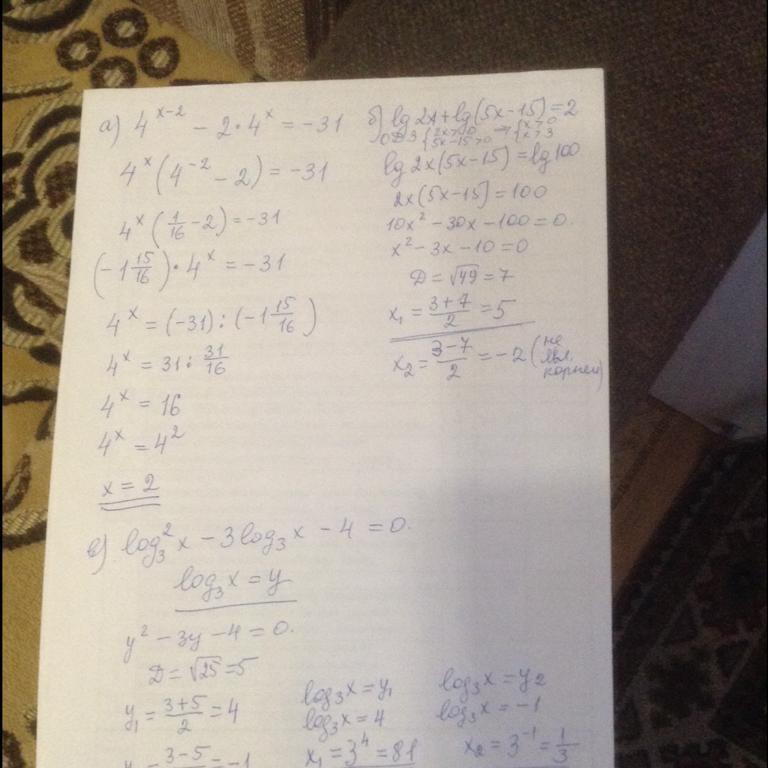 а) 4^(x-2) - 2·4^x = -31
4^x(4^(-2) - 2) = -31
4^x(1/16 - 2) = -31
(-1 15/16)·4^x = -31
4^x = (-31) : (-1 15/16)
4^x = 31 : 31/16
4^x = 16
4^x = 4^2
x = 2
б) lg 2x + lg(5x-15) = 2
ОДЗ {2x>0 5x-15>0 ⇒ {x>0 x>3
lg 2x(5x-15) = lg 100
2x(5x-15) = 100
10x² - 30x - 100 = 0.
x² - 3x - 10 = 0
D = √49 = 7
x₁ = (3+7)/2 = 5
x₂ = (3-7)/2 = -2 (не явл. корнем)
в) log₃²x - 3log₃x - 4 = 0.
log₃x = y
y² - 3y - 4 = 0.
D = √25 = 5
y₁ = (3+5)/2 = 4
3-5 = -1
log₃x = y₁
log₃x = 4
x₁ = 3⁴ = 81
log₃x = y₂
log₃x = -1
x₂ = 3^(-1) = 1/3